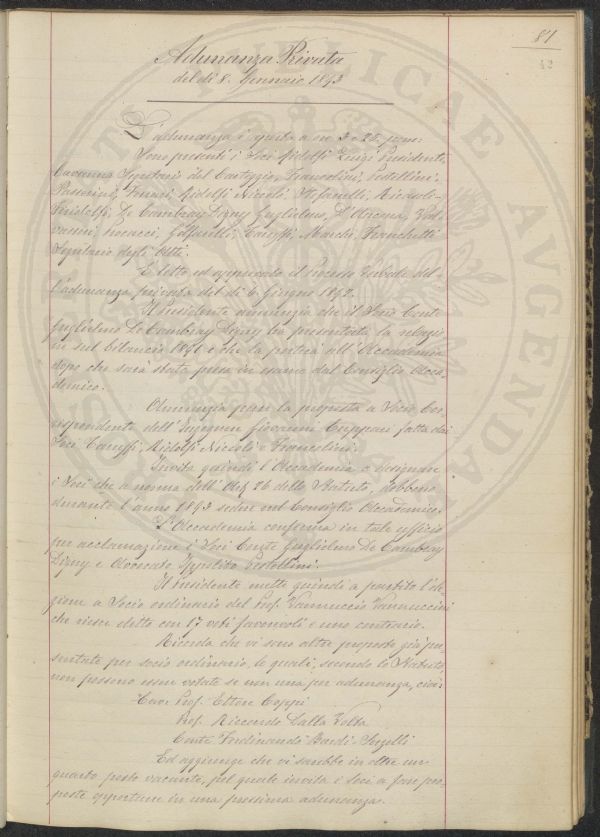 81
Adunanza Privata
del dì 8. Gennaio 1893
L'adunanza è aperta a ore 3 e 25 pom:
Sono presenti i Soci Ridolfi Luigi Presidente,
Caruana Segretario del Carteggio, Francolini, Pestellini,
Passerini, Fornari, Ridolfi Niccolò, Stefanelli, Ricasoli-
Firidolfi, De Cambray Digny Guglielmo, D'Ancona, Van
Galfarelli, Caruffi, Marchi, Franchetti
Segretario degli Atti.
È letto ed approvato il Processo Verbale del-
l'adunanza privata del dì 6 Giugno 1892.
Il Presidente annunzia che il Socio Conte
Guglielmo De Cambray Digny ha presentata la relazio
ne sul bilancio 1891 e che la porterà all'Accademia
dopo che sarà stata presa in esame dal Consiglio Acca-
demico.
Annunzia pure la proposta a Socio Cor-
rispondente dell'Ingegner Giovanni Cuppari fatta dai
Soci Caruffi, Ridolfi Niccolò e Francolini.
Invita quindi l'Accademia a designare
i Soci che a norma dell'Art. 26 dello Statuto, debbono
durante l'anno 1893 sedere nel Consiglio Accademico.
L'Accademia conferma in tale ufficio
per acclamazione i Soci Conte Guglielmo De Cambray
Digny e Avvocato Ippolito Pestellini.
Il Presidente mette quindi a partito l'ele-
zione a Socio ordinario del Prof. Vannuccio Vannuccini
che riesce eletto con 17 voti favorevoli e uno contrario.
Ricorda che vi sono altre proposte già pre-
sentate per socio ordinario, le quali, secondo lo Statuto
non possono essere votate se non una per adunanza, cioè:
Cav. Prof. Ettore Coppi
Prof. Riccardo Dalla Volta
Conte Ferdinando Bardi-Serzelli
Ed aggiunge che vi sarebbe in oltre un
quarto posto vacante, pel quale invita i Soci a fare pro-
poste opportune in una prossima adunanza.